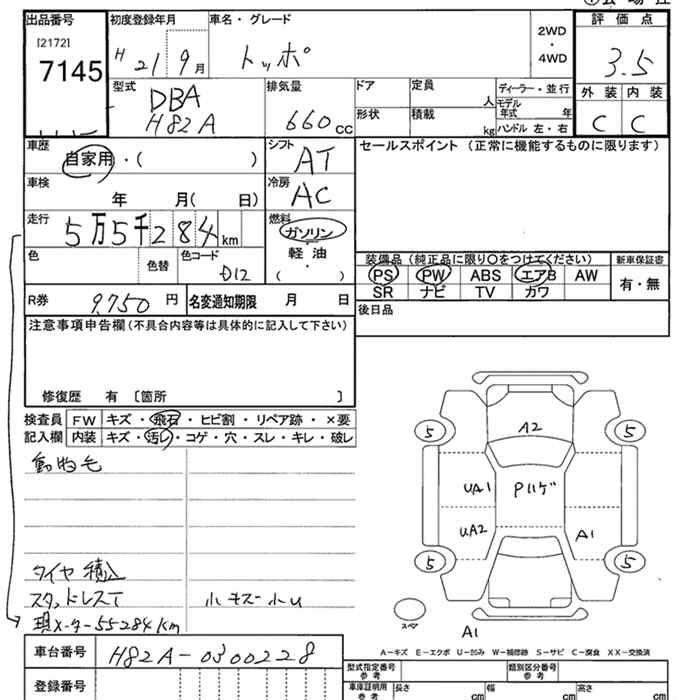 出品番号 初度登録年月 車名・グレード 評価点
[2172] H 21 9月 トッポ 2WD・4WD 3.5
7145
型式 DBA H82A 排気量 660cc ドア 定員 人 ディーラー・並行 外装 内装
形状 積載 kg モデル年式 年 ハンドル 左・右 C C
車歴 自家用・( ) シフト AT セールスポイント (正常に機能するものに限ります)
車検 年 月( 日) 冷房 AC
走行 5万5千284km 燃料 ガソリン・軽油・( )
色 色替 色コード D12
装備品 (純正品に限り○をつけてください) 新車保証書
PS PW ABS エアB AW 有・無
SR ナビ TV カワ
R券 9,750円 名変通知期限 月 日
後日品
注意事項申告欄 (不具合内容等は具体的に記入して下さい)
修復歴 有 〔箇所 〕
検査員 FW キズ・飛石・ヒビ割・リペア跡・×要
記入欄 内装 キズ・汚れ・コゲ・穴・スレ・キレ・破レ
動物毛
タイヤ積込
スタッドレスT 小キズ小U
現メーター55284km
5 5
A2
UA1 Pハゲ
UA2 A1
5 5
スペア
A1
A-キズ E-エクボ U-凹み W-補修跡 S-サビ C-腐食 XX-交換済
車台番号 H82A-0300228
登録番号
型式指定番号 参考 類別区分番号 参考
車庫証明用 参考 長さ cm 幅 cm 高さ cm